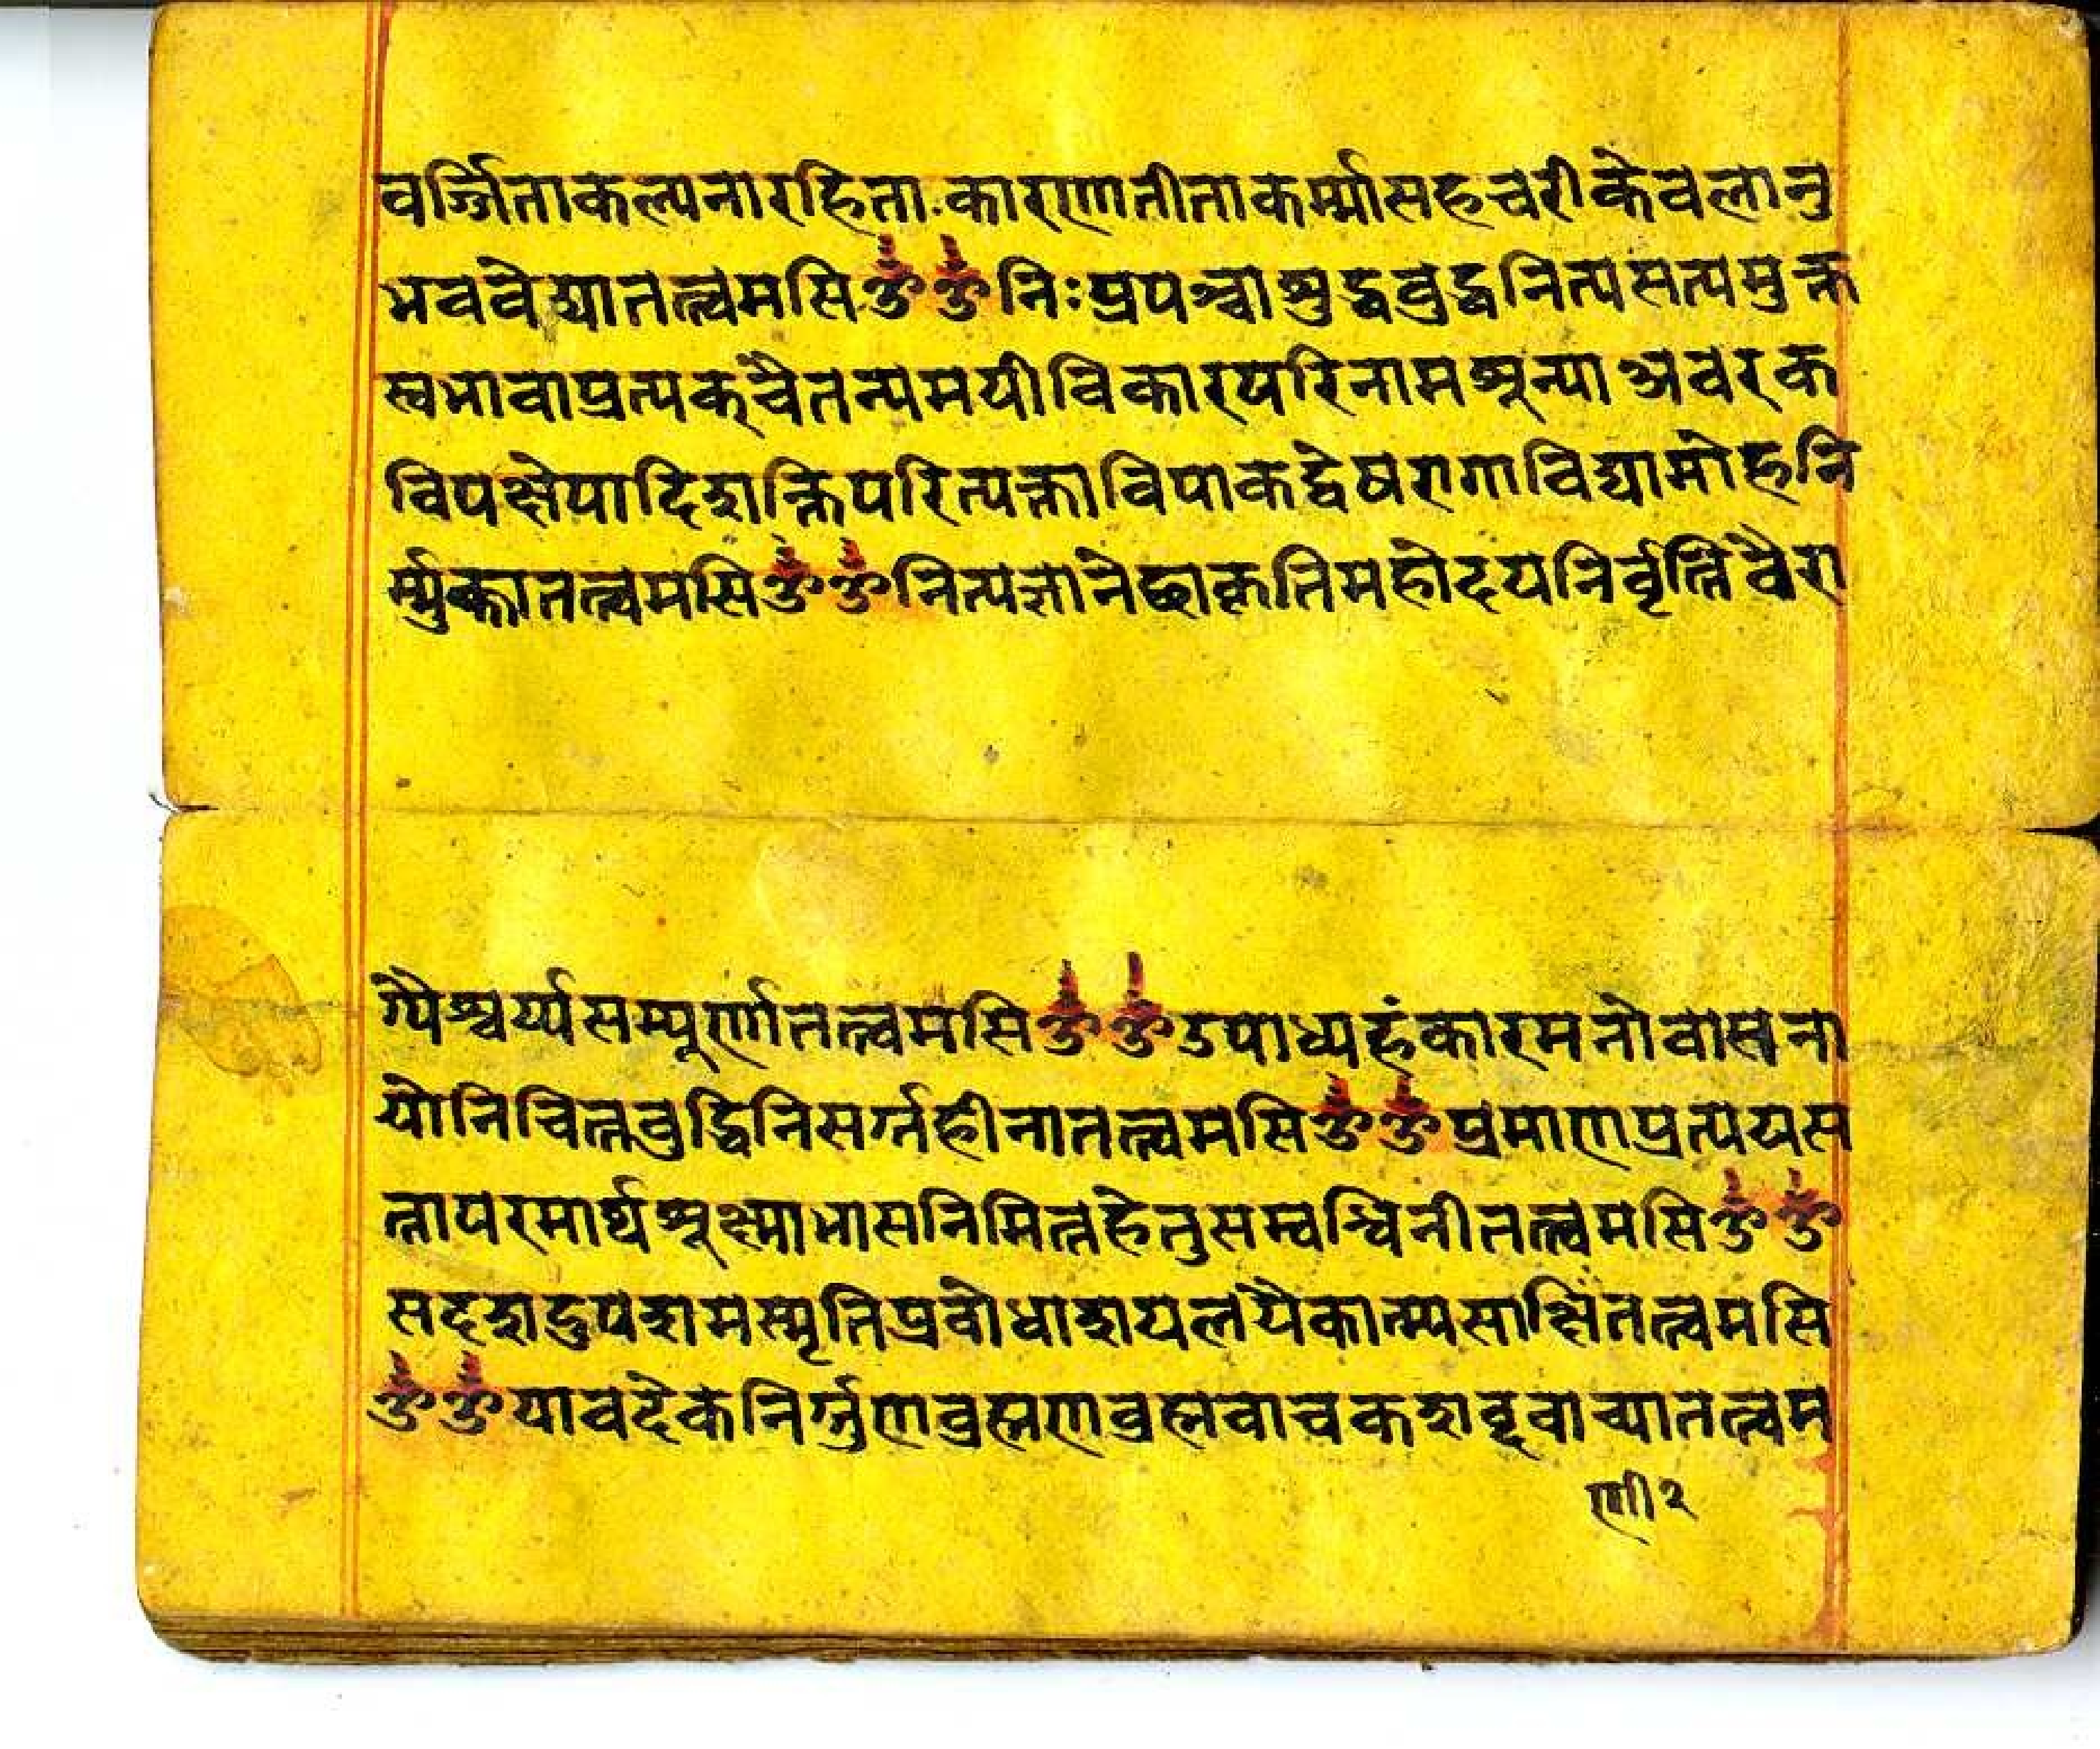 वर्ज्जिताकल्पनारहिताःकारणातीताकर्म्मासहचरीकेवलानु
भववेद्यातत्त्वमसिॐॐनिःप्रपञ्चाशुद्धवुद्धनित्यसत्यमुक्त
स्वभावाप्रत्यक्चैतन्यमयीविकारपरिनामशून्याअवरक
विपक्षेपादिशक्तिपरित्यक्ताविपाकद्वेषरागाविद्यामोहनि
र्म्मुक्तातत्त्वमसिॐॐनित्यज्ञानेछाकृतिमहोदयनिर्वृत्तिवैरा
ग्यैश्वर्य्यसम्पूर्णातत्त्वमसिॐॐउपाध्यहंकारमनोवासना
योनिचित्तवुद्धिनिसर्ग्गहीनातत्त्वमसिॐॐप्रमाणप्रत्ययस
त्तापरमार्थशूक्ष्माभासनिमित्तहेतुसम्वन्धिनीतत्त्वमसिॐॐ
सदशदुपशमस्मृतिप्रवोधाशयलयैकात्म्यसाक्षिंतत्त्वमसि
ॐॐयावदेकनिर्ग्गुणव्रह्मणव्रह्मवाचकशब्दवाच्यातत्त्वम
णी२